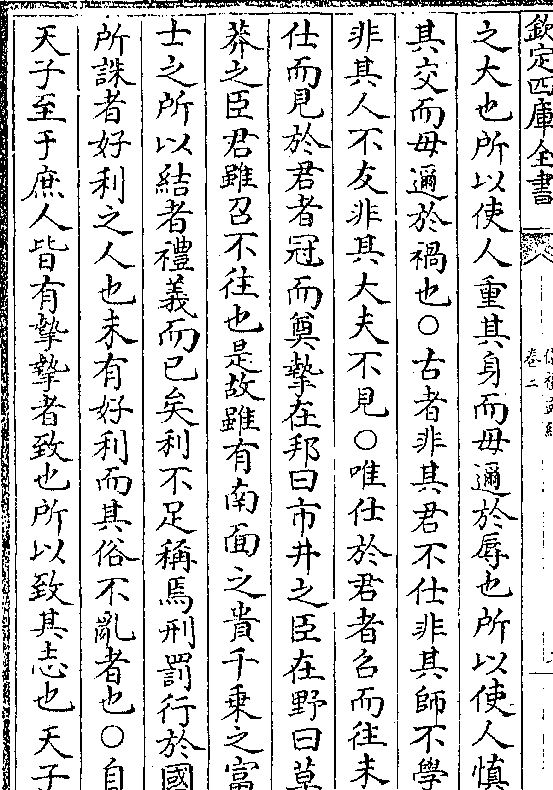 欽定四庫全書
卷二
之大也所以使人重其身而毋邇於辱也所以使人慎
其交而毋邇於禍也○古者非其君不仕非其師不學
非其人不友非其大夫不見○唯仕於君者召而往未
仕而見於君者冠而奠摯在邦曰市井之臣在野曰草
莽之臣君雖召不往也是故雖有南面之貴千乗之富
士之所以結者禮義而已矣利不足稱焉刑罰行於國
所誅者好利之人也未有好利而其俗不亂者也○自
天子至于庶人皆有摯摯者致也所以致其志也天子